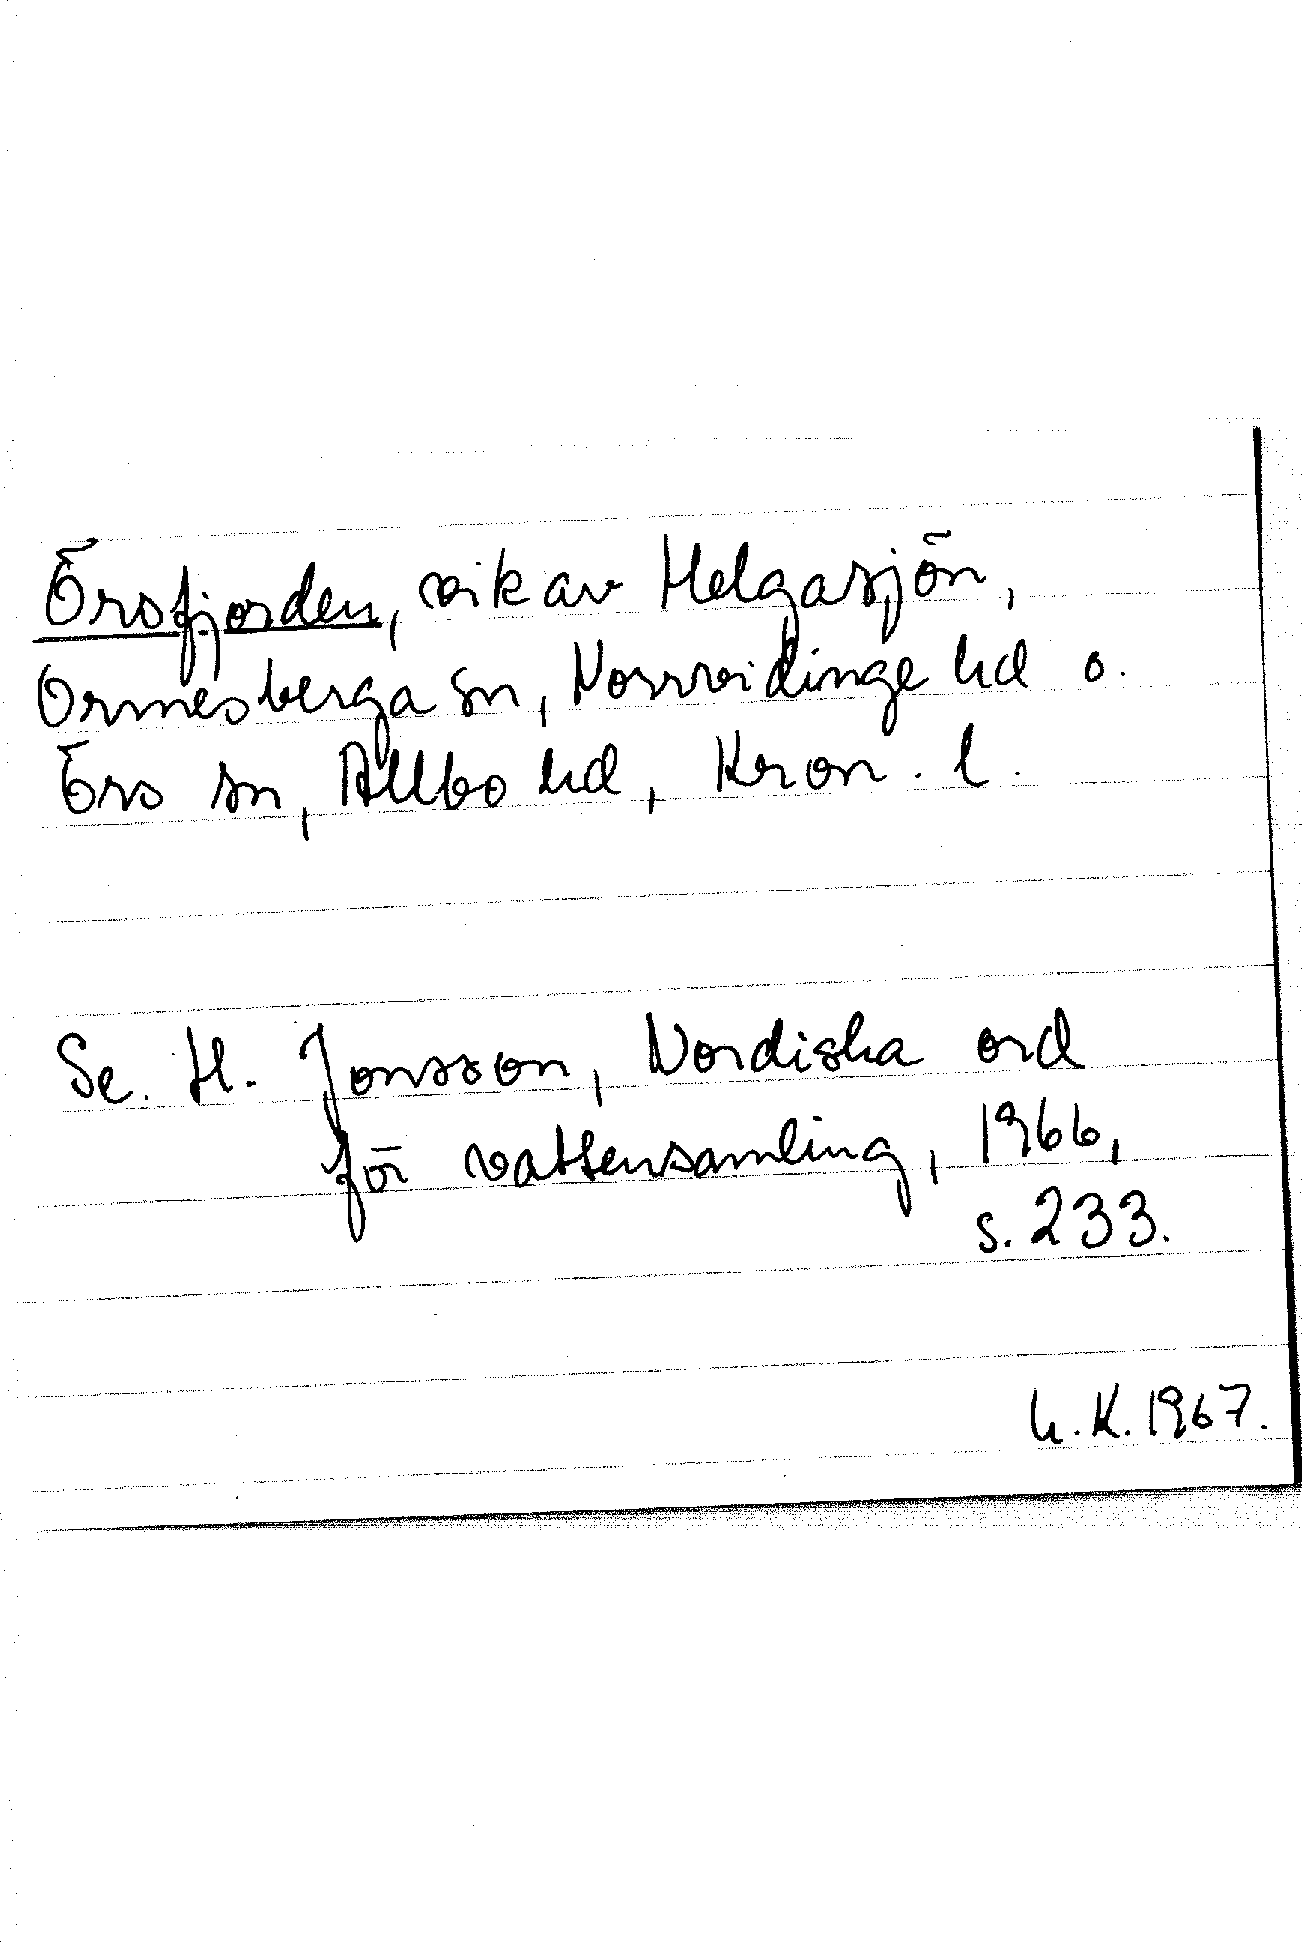 Örsfjorden, vik av Helgasjön,
Ormesberga sn, Norrvidinge hd o.
Örs sn, Allbo hd, Kron. l.
Se. H. Jonsson, Nordiska ord
för vattensamling, 1966,
s. 233.
K. 1967.